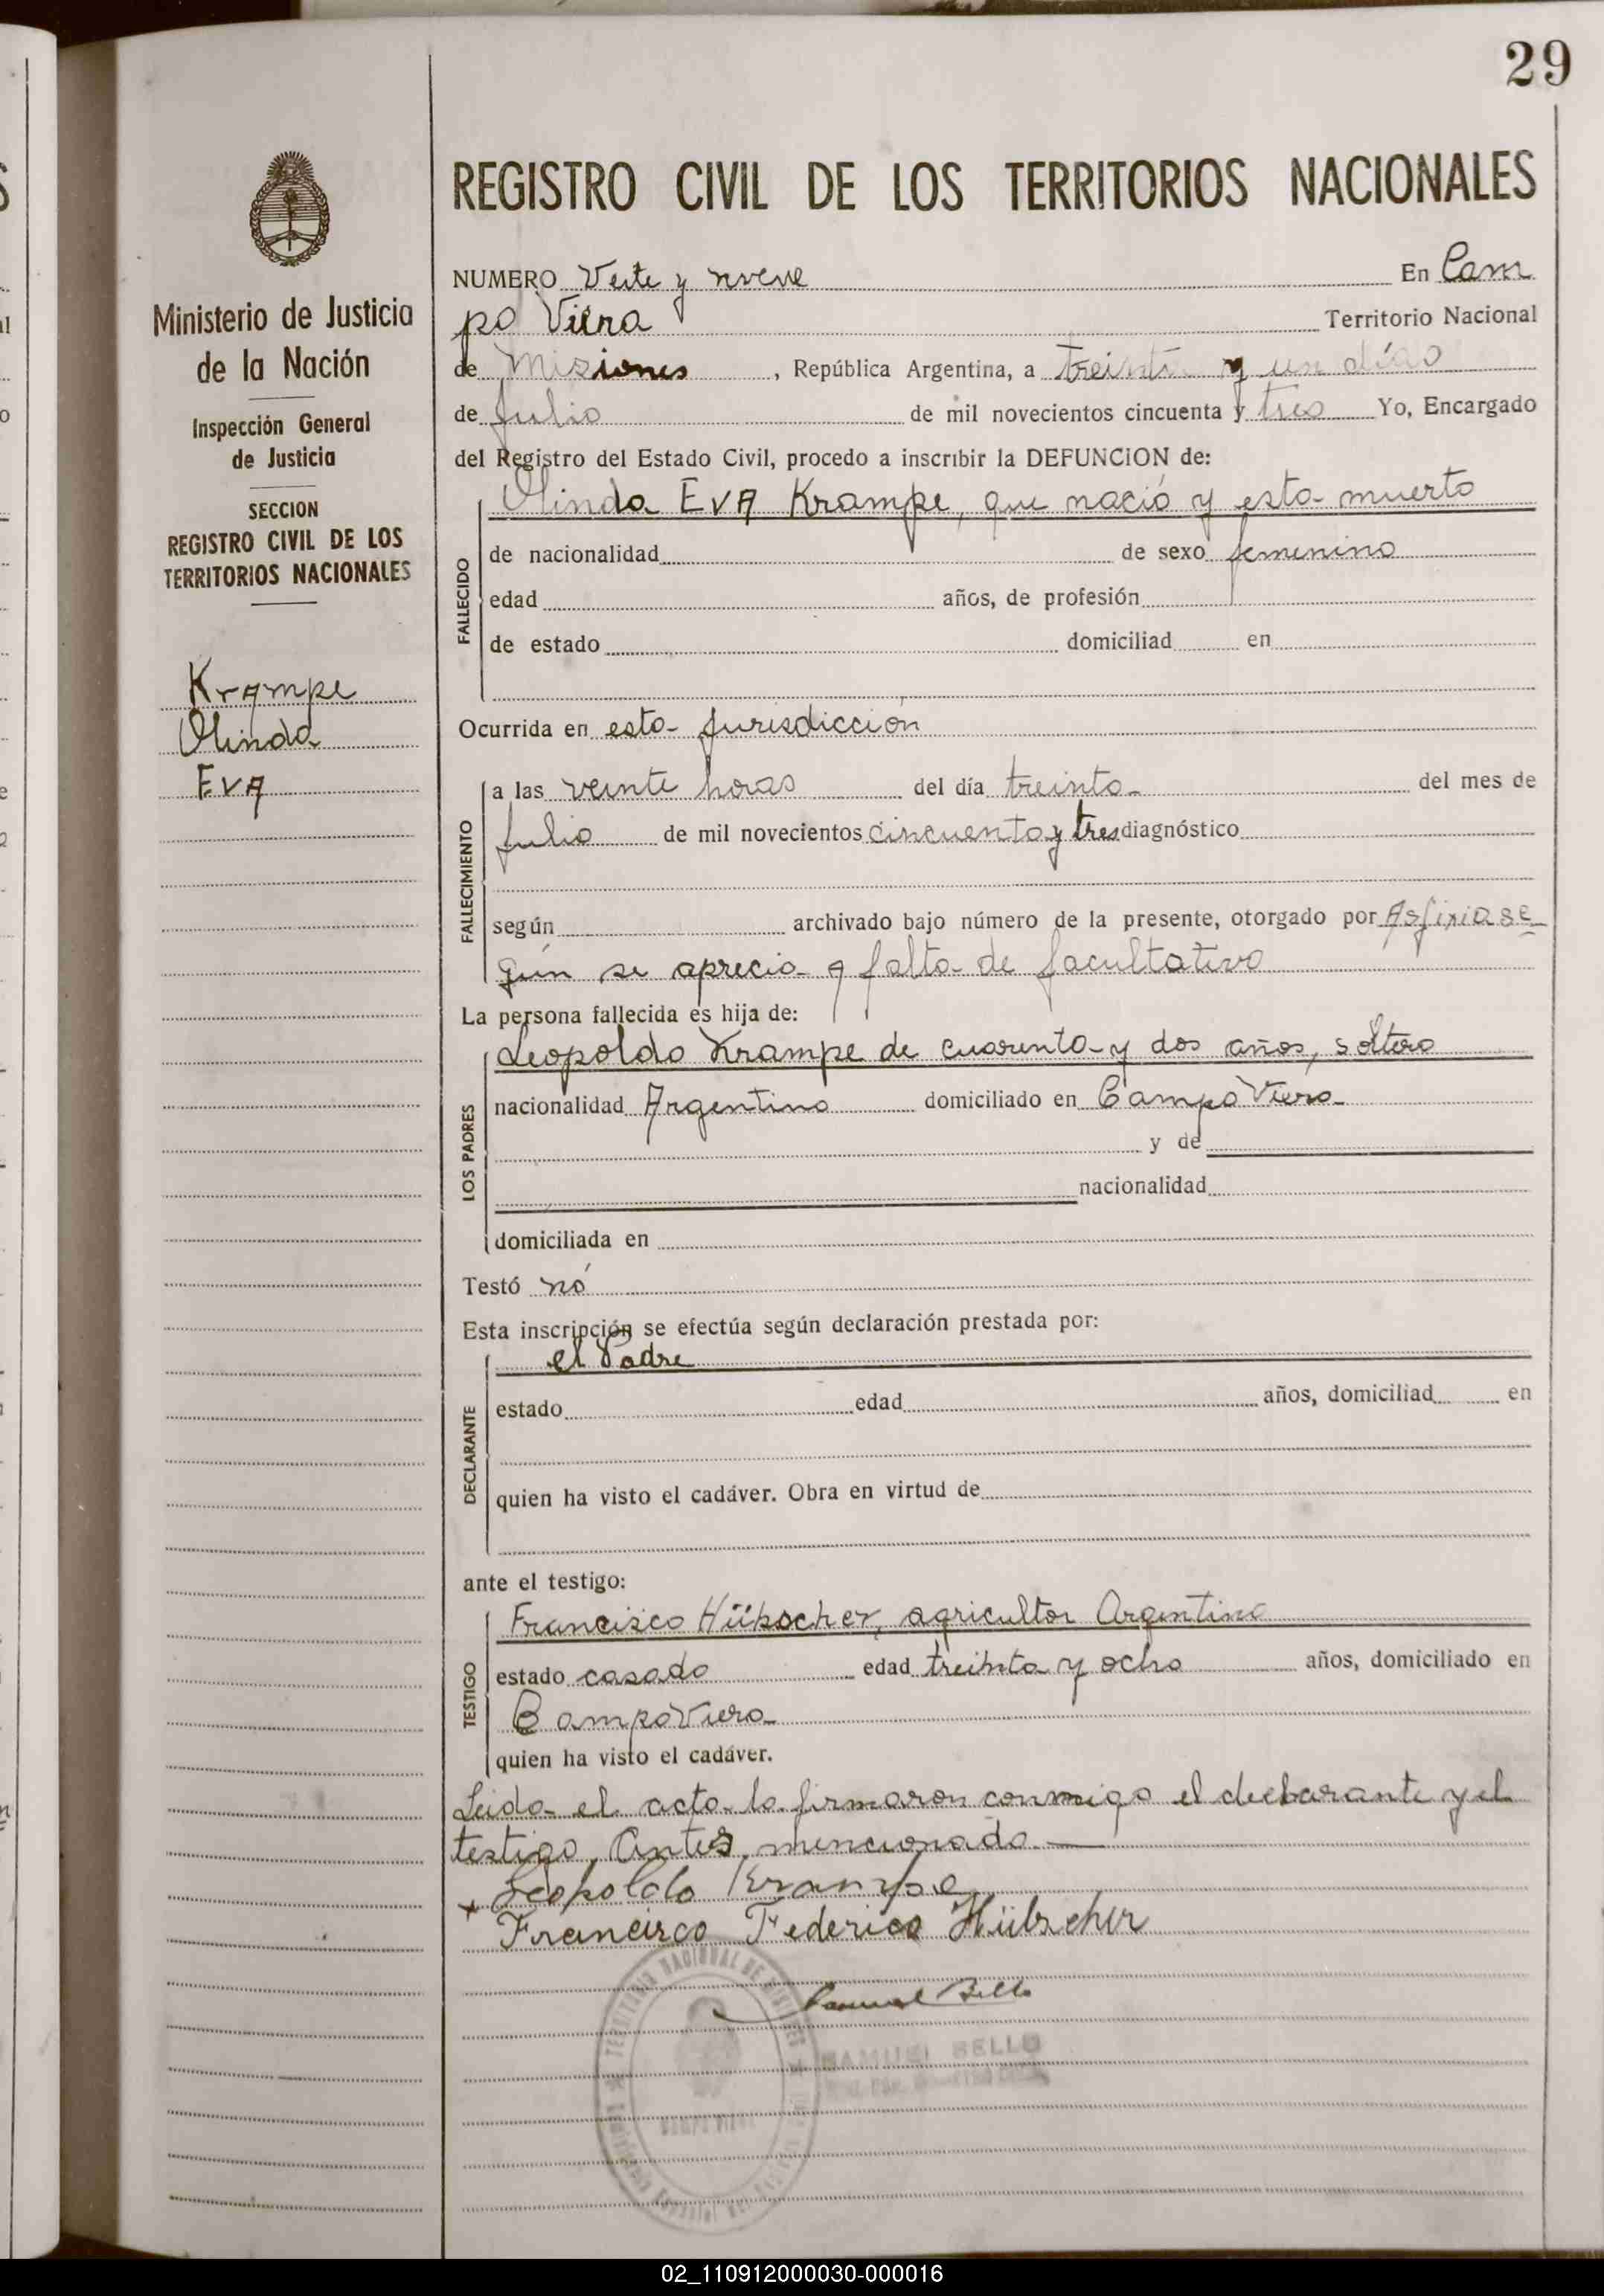 29
REGISTRO CIVIL DE LOS TERRITORIOS NACIONALES
Ministerio de Justicia
de la Nación
Inspección General
de Justicia
SECCION
REGISTRO CIVIL DE LOS
TERRITORIOS NACIONALES
Krampe
Olinda
EVA
NUMERO Veite y nueve En Cam
po Viera Territorio Nacional
de Misiones, República Argentina, a treinta y un días
de Julio de mil novecientos cincuenta y tres Yo, Encargado
del Registro del Estado Civil, procedo a inscribir la DEFUNCION de:
Olinda EVA Krampe, que nació y esta muerta
FALLECIDO
de nacionalidad de sexo femenino
edad años, de profesión
de estado domiciliad en
Ocurrida en esta Jurisdicción
FALLECIMIENTO
a las veinte horas del día treinta del mes de
Julio de mil novecientos cincuenta y tres diagnóstico
según archivado bajo número de la presente, otorgado por Asfixia se
gún se aprecia a falta de facultativo
La persona fallecida es hija de:
LOS PADRES
Leopoldo Krampe de cuarenta y dos años, soltero
nacionalidad Argentino domiciliado en Campo Viera
y de
nacionalidad
domiciliada en
Testó nó
Esta inscripción se efectúa según declaración prestada por:
DECLARANTE
el Padre
estado edad años, domiciliad en
quien ha visto el cadáver. Obra en virtud de
ante el testigo:
TESTIGO
Francisco Hübscher, agricultor Argentino
estado casado edad treinta y ocho años, domiciliado en
Campo Viera
quien ha visto el cadáver.
Leida el acta la firmaron conmigo el declarante y el
testigo Antes mencionado
x Leopoldo Krampe
Francisco Federico Hübscher
Samuel Bello
SAMUEL BELLO
02_110912000030-000016